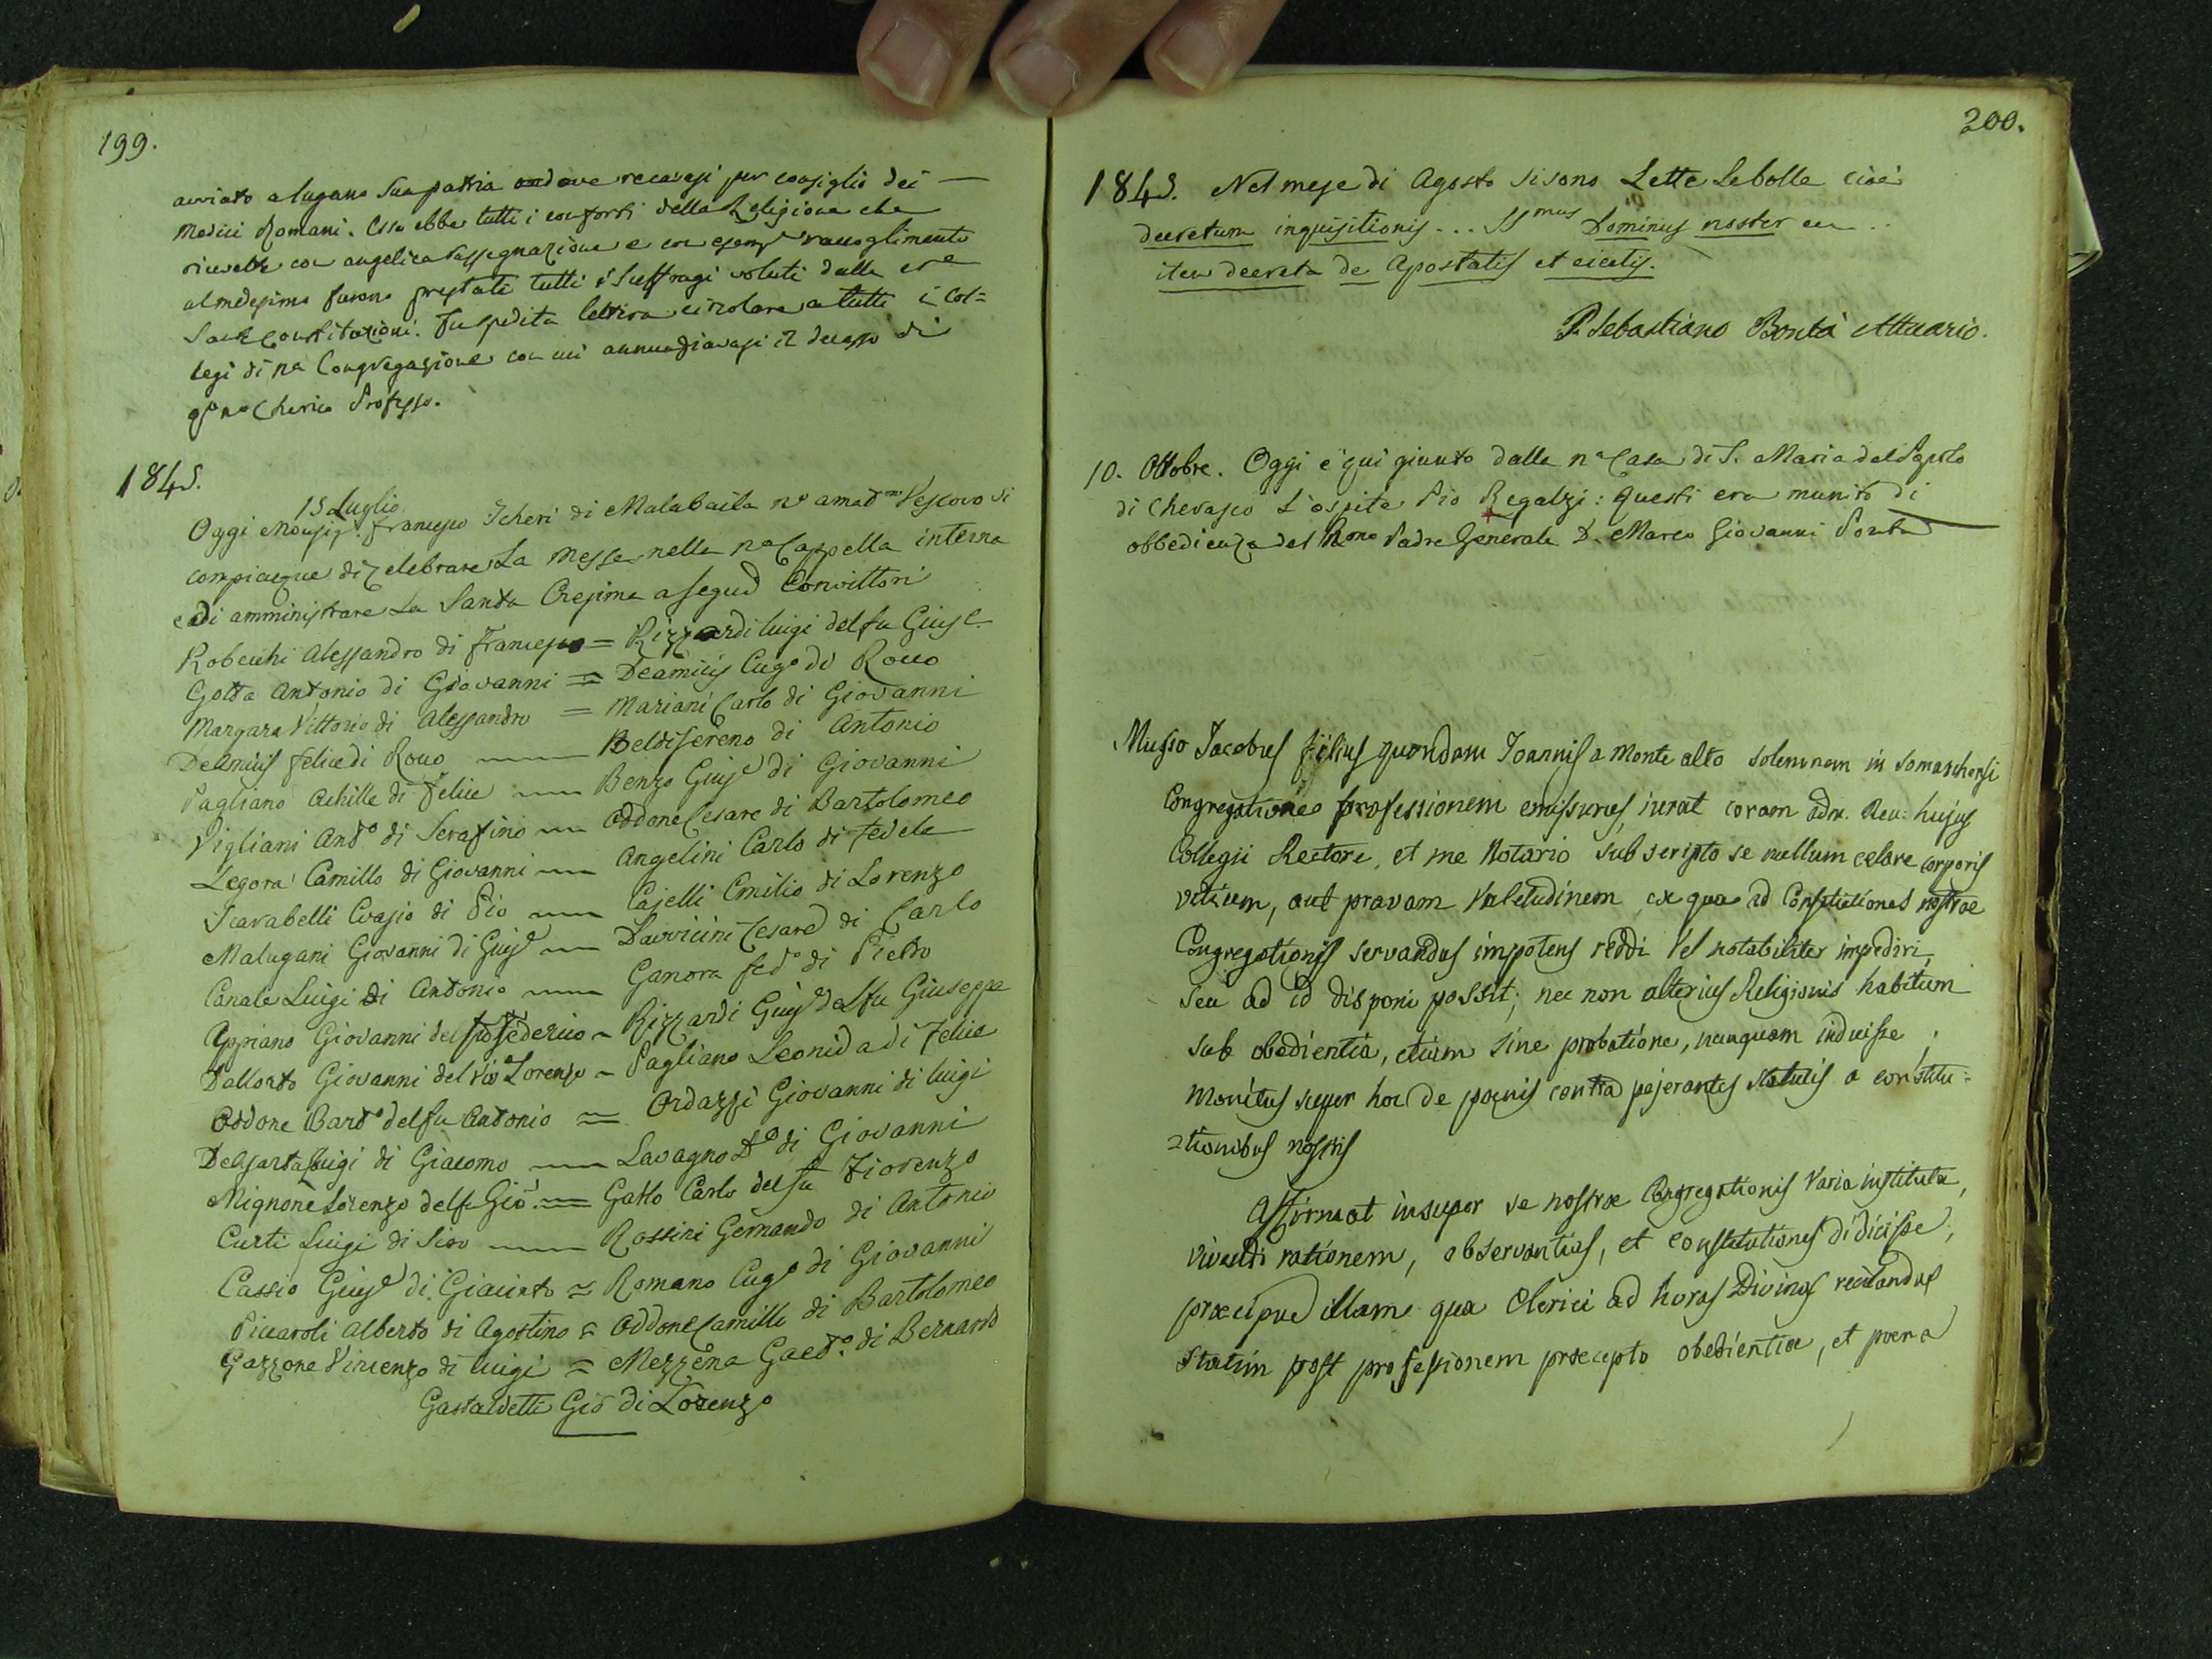 199.
avviato a lugano sua patria ove recavasi per consiglio dei —
Medici Romani. Esso ebbe tutti i conforti della Religione che
ricevette con angelica rassegnazione e con raccoglimento
al medesimo furono prestati tutti i Suffragi voluti dalle
Costituzioni. Fu spedita lettera circolare a tutti i Col=
legi di nª Congregazione con cui annunziavasi il decesso di
qº nº Cherico Professo.
1845.
15 Luglio
Oggi Monsigr. Francesco Icheri di Malabaila nº amatmº Vescovo si
compiacque di celebrare La Messa nella nª Cappella interna
e di amministrare La Santa Cresima a segutⁱ Convittori
Robecchi Alessandro di Francesco = Rizzardi luigi del fu Giuse
Gotta Antonio di Giovanni = Deamicis Eugº di Rocco
Margara Vittorio di Alessandro = Mariani Carlo di Giovanni
Deamicis felice di Rocco —— Beldi Sereno di Antonio
Pagliano Achille di Felice —— Benzo Giusᵉ di Giovanni
Vigliani Antº di Serafino — Oddone Cesare di Bartolomeo
Legora Camillo di Giovanni — Angelini Carlo di Fedele
Scarabelli Evasio di Pio — Cajelli Emilio di Lorenzo
Malugani Giovanni di Giusᵉ — Davvicini Cesare di Carlo
Canale Luigi di Antonio — Ganora fedº di Pietro
Appiano Giovanni del fu federico — Rizzardi Giusᵉ del fu Giuseppe
Dallorto Giovanni del Lorenzo — Pagliano Leonida di Felice
Oddone Bartº del fu Antonio = Ordazzi Giovanni di luigi
Delsarta luigi di Giacomo — Lavagno Dº di Giovanni
Mignone Lorenzo del fu Gio. — Gatto Carlo del fu Fiorenzo
Curti Luigi di Siro — Rossini Gernando di Antonio
Cassio Giusᵉ di Giacinto = Romano Eugº di Giovanni
Piccaroli Alberto di Agostino = Oddone Camillo di Bartolomeo
Gazzone Vincenzo di luigi = Mezzena Gaetº. di Bernardo
Gastaldetti Gio di Lorenzo
200.
1845. Nel mese di Agosto si sono Lette Le bolle cioè
decretum inquisitionis ... SSmus Dominus noster ..
item decreta de Apostatis et eiectis.
P. Sebastiano Bontà Attuario.
10. Ottobre. Oggi è qui giunto dalla nª Casa di S. Maria del Popolo
di Cherasco L'ospite Pio Regalzi: Questi era munito di
obbedienza del Rmo Padre Generale D. Marco Giovanni Ponta
Musso Jacobus filius quondam Joannis a Monte alto solemnem in Somaschensi
Congregatione professionem emissurus, iurat coram adm. Rev: hujus
Collegii Rectore, et me Notario subscripto se nullum celare corporis
vitium, aut pravam Valetudinem ex qua ad Constitutiones nostrae
Congregationis servandas impotens reddi vel notabiliter impediri
seu ad id disponi possit; nec non alterius Religionis habitum
sub obedientia, etiam sine probatione, nunquam induisse;
Monitus super hoc de poenis contra pejerantes statutis a constitu=
=tionibus nostris
Affirmat insuper se nostrae Congregationis Varia instituta,
vivendi rationem, observantias, et constitutiones didicisse,
praecipue illam qua Clerici ad horas Divinas recitandas
statim post professionem praecepto obedientiae, et poena